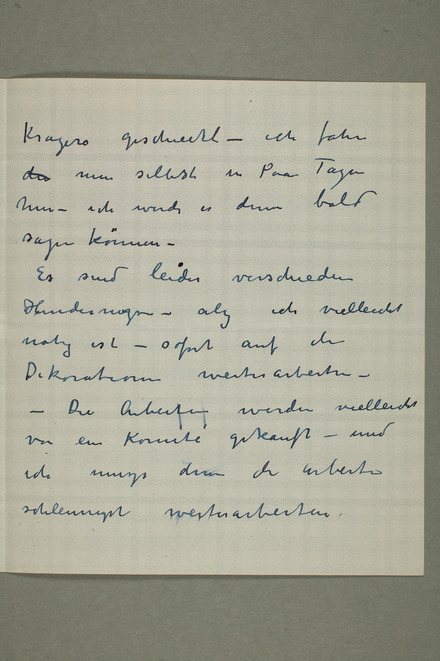 Kragero geschickt – ich fahre
nun selbst in Paar Tagen
hin – ich werde es dann bald
sagen können –
Es sind leider verschiedene
Hindernogen – ich vielleicht
notig ist – sofort auf die
Dekorationen weiterarbeiten –
– Die werden vielleicht
von ein Komité gekauft – und
ich muss dann die arbeiten
schleunigst weiterarbeiten.